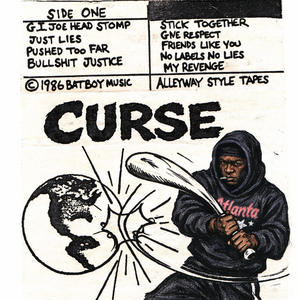 SIDE ONE
G.I. JOE HEAD STOMP
JUST LIES
PUSHED TOO FAR
BULLSHIT JUSTICE
STICK TOGETHER
GIVE RESPECT
FRIENDS LIKE YOU
NO LABELS NO LIES
MY REVENGE
© 1986 BATBOY MUSIC
ALLEYWAY STYLE TAPES
CURSE
Atlanta